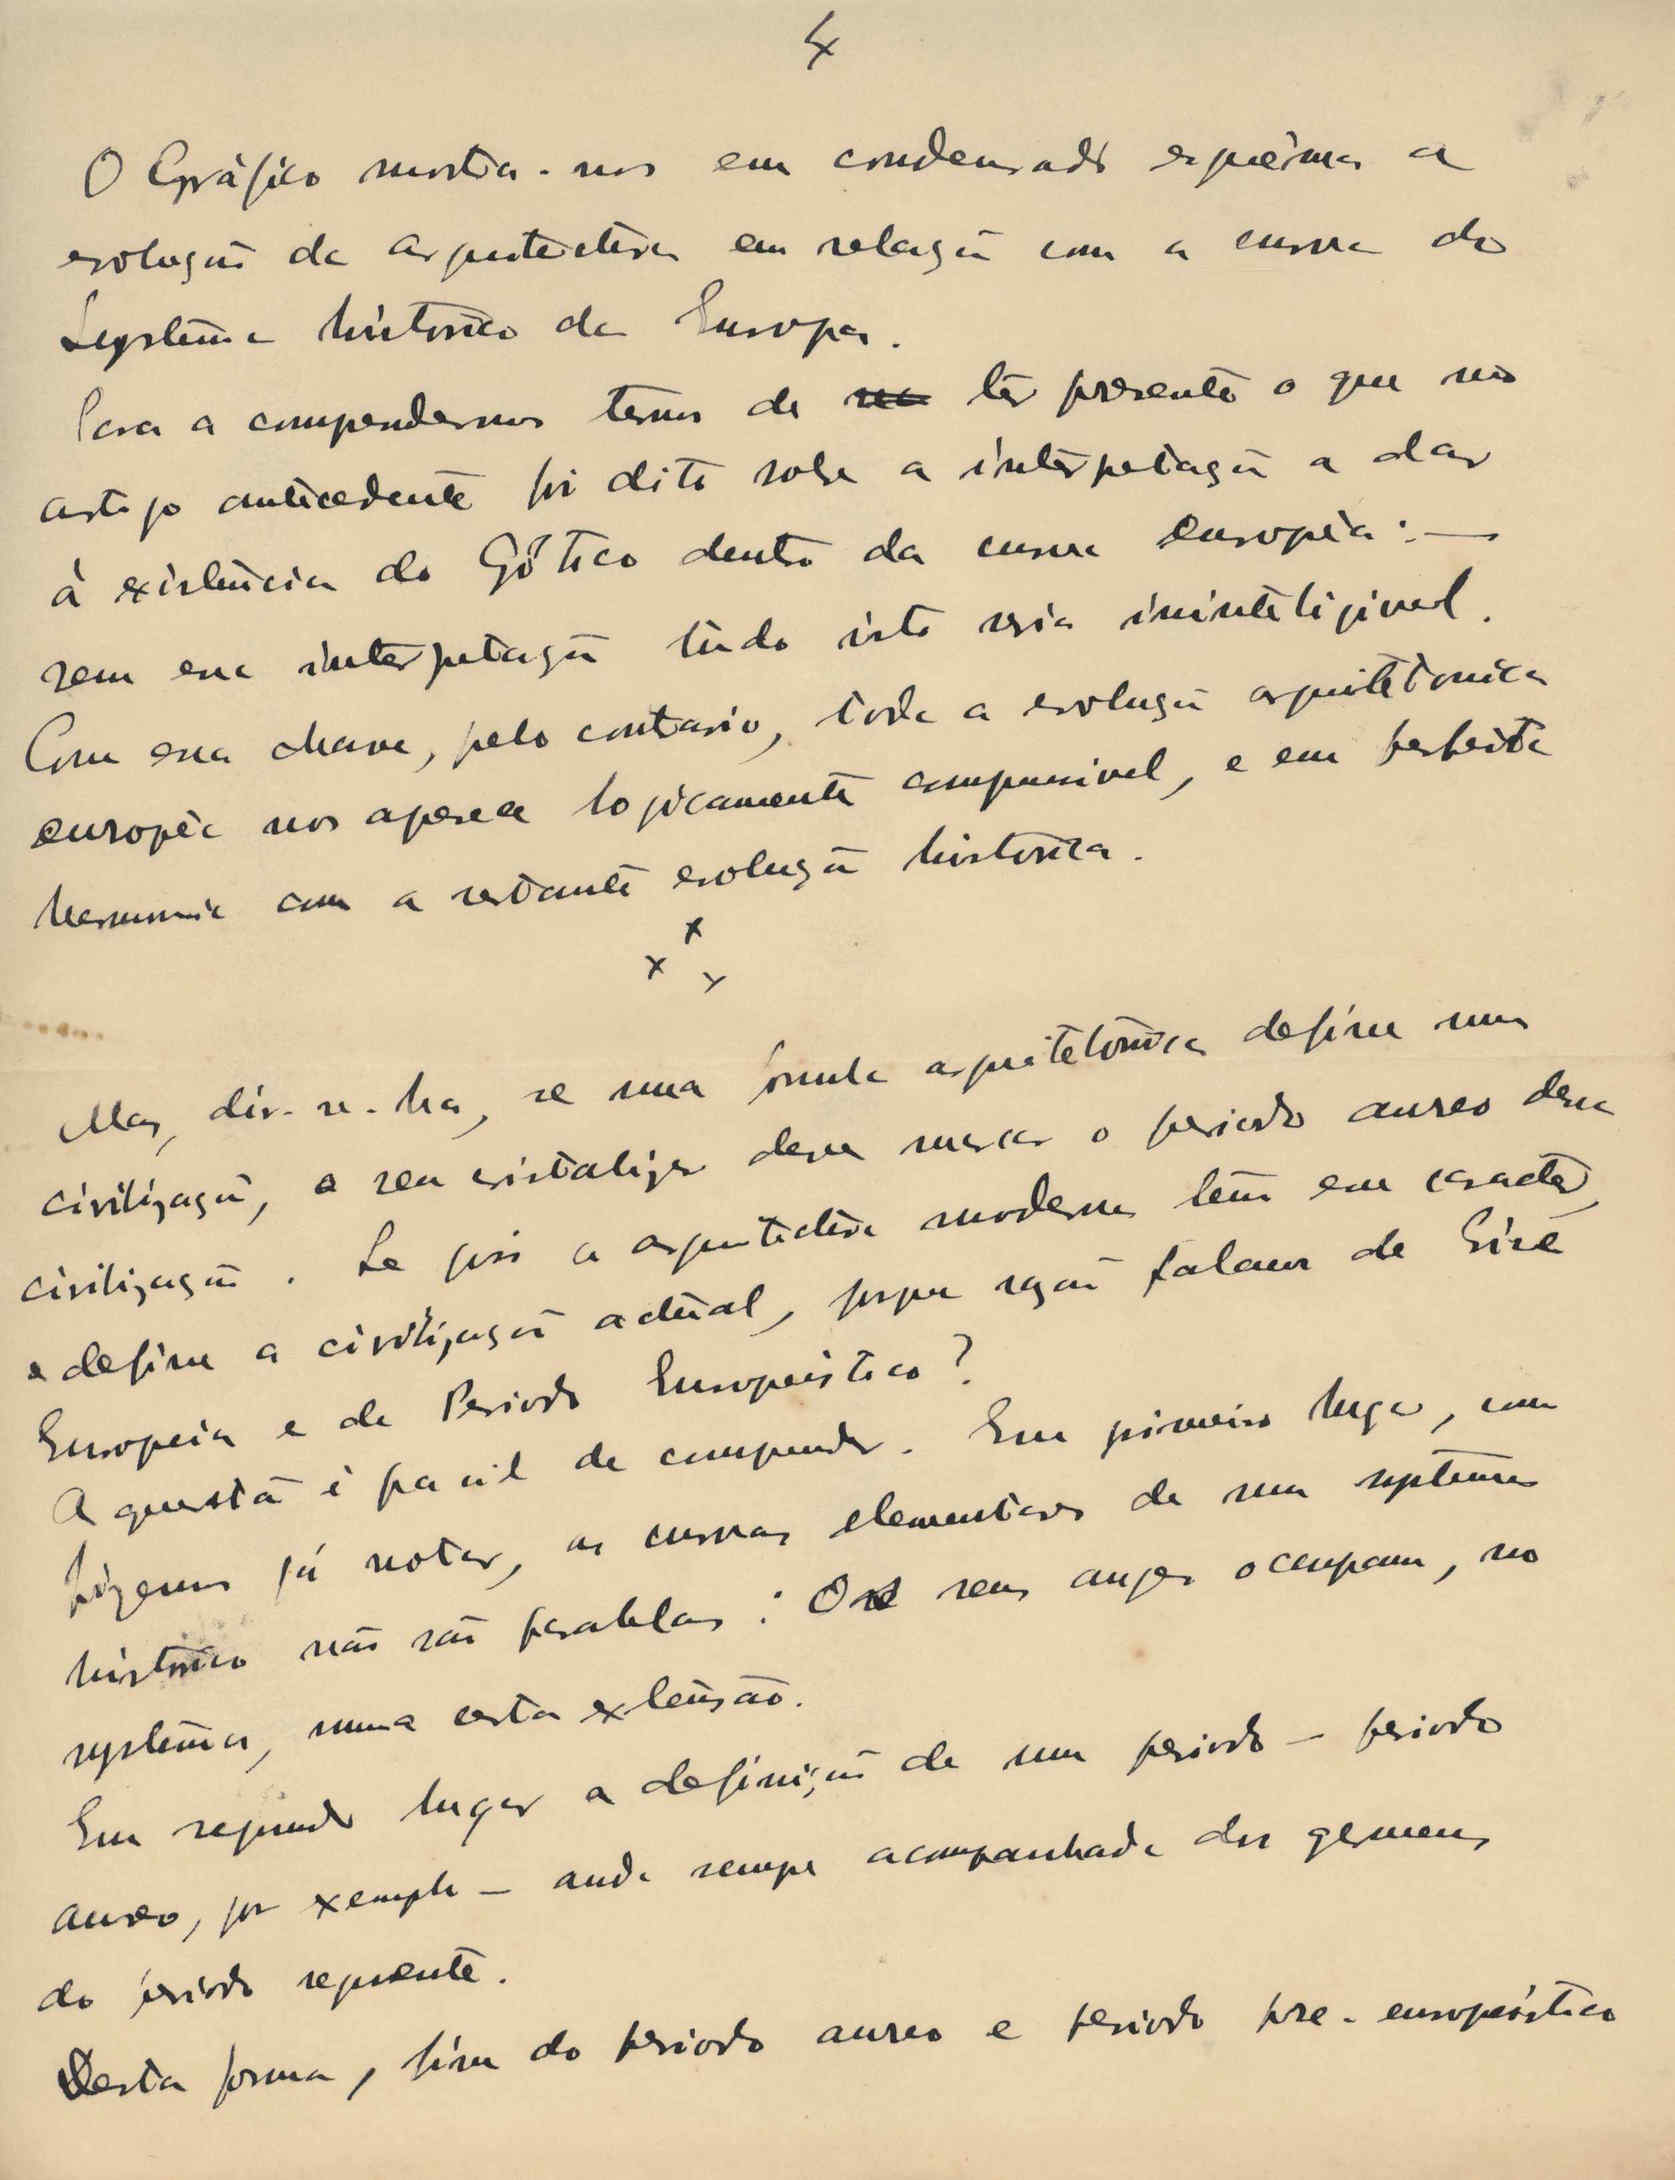 4
O Gráfico mostra-nos em condensado esquema a
evolução da arquitectura em relação com a curva do
Systema historico da Europa.
Para a compendermos temos de ter presente o que no
artigo antecedente foi dito sobre a interpretação a dar
à existência do Gótico dentro da curva europèa: —
sem essa interpretação tudo isto seria inintelijivel.
Com essa chave, pelo contrario, toda a evolução arquitetonica
europèa nos aparece lojicamente compreensivel, e em perfeita
harmonia com a restante evolução historica.
x
x x
Mas, dir-se-ha, se uma fórmula arquitetónica define uma
civilização, o seu cristalizar deve marcar o periodo aureo dessa
civilização. Se pois a arquitectura moderna tem esse caracter,
e define a civilização actual, porque razão falamos de Crise
Europeia e de Periodo Europeistico?
A questão é facil de compreender. Em primeiro lugar, como
fizemos já notar, as curvas elementares de um systema
histórico não são paralelas: Os seus auges ocupam, no
systema, uma certa extensão.
Em segundo lugar a definição de um periodo — periodo
aureo, por exemplo — anda sempre acompanhada dos germens
do periodo seguinte.
Desta forma, fim do periodo aureo e periodo pre-europeistico